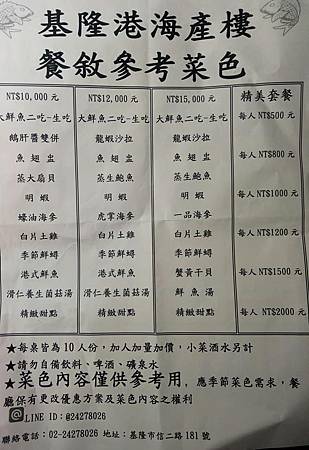 基隆港海產樓
餐敘參考菜色
NT$10,000 元 NT$12,000 元 NT$15,000 元 精美套餐
大鮮魚二吃-生吃 大鮮魚二吃-生吃 大鮮魚二吃-生吃 每人 NT$500 元
鵝肝醬雙併 龍蝦沙拉 龍蝦沙拉
魚翅盅 魚翅盅 魚翅盅 每人 NT$800 元
蒸大扇貝 蒸生鮑魚 蒸生鮑魚
明蝦 明蝦 明蝦 每人 NT$1000 元
蠔油海參 虎掌海參 一品海參
白片土雞 白片土雞 白片土雞 每人 NT$1200 元
季節鮮蟳 季節鮮蟳 季節鮮蟳
港式鮮魚 港式鮮魚 蟹黃干貝 每人 NT$1500 元
滑仁養生菌菇湯 滑仁養生菌菇湯 鮮魚湯
精緻甜點 精緻甜點 精緻甜點 每人 NT$2000 元
★每桌皆為 10 人份,加人加量加價,小菜酒水另計
★請勿自備飲料、啤酒、礦泉水
★菜色內容僅供參考用,應季節菜色需求,餐
廳保有更改優惠方案及菜色內容之權利
LINE ID:@24278026
聯絡電話:02-24278026 地址:基隆市信二路 181 號